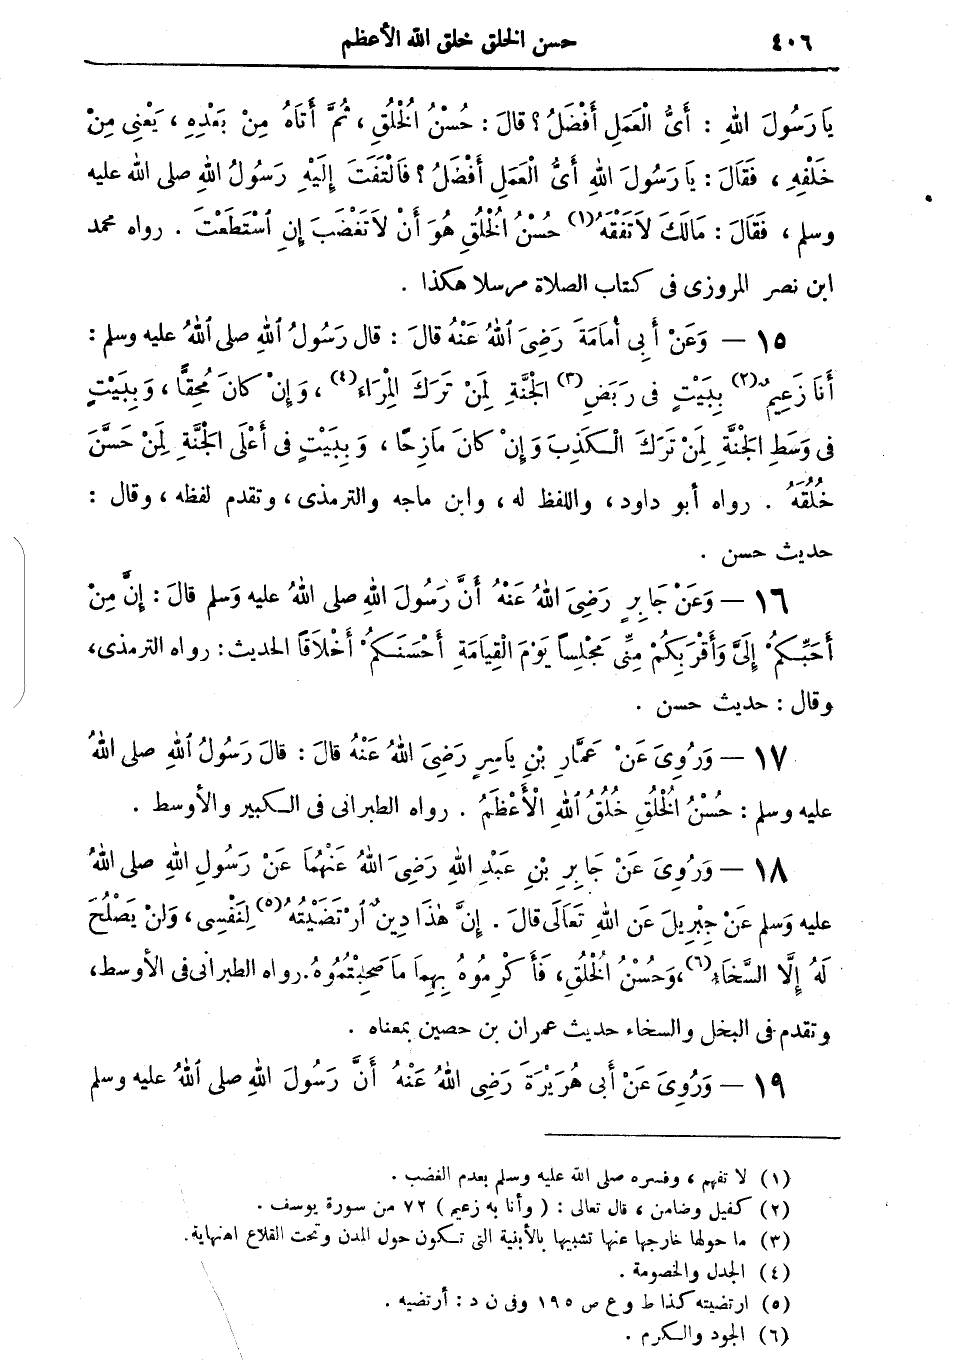 ٤٠٦ حسن الخلق خلق الله الأعظم
يَا رَسُولَ اللهِ : أَىُّ الْعَمَلِ أَفْضَلُ ؟ قالَ : حُسْنُ الْخُلُقِ ، ثُمَّ أَتَاهُ مِنْ بَعْدِهِ ، يَعْنِى مِنْ
خَلْفِهِ ، فَقَالَ : يَا رَسُولَ اللهِ أَىُّ الْعَمَلِ أَفْضَلُ ؟ فَالْتَفَتَ إِلَيْهِ رَسُولُ اللهِ صلى الله عليه
وسلم ، فَقَالَ : مَالَكَ لاَ تَفْقَهُ(١) حُسْنُ الْخُلُقِ هُوَ أَنْ لاَ تَغْضَبَ إِنِ اسْتَطَعْتَ . رواه محمد
ابن نصر المروزى فى كتاب الصلاة مرسلا هكذا .
١٥ — وَعَنْ أَبِى أُمَامَةَ رَضِىَ اللهُ عَنْهُ قالَ : قال رَسُولُ اللهِ صلى اللهُ عليه وسلم :
أَنَا زَعِيمٌ(٢) بِبَيْتٍ فِى رَبَضِ(٣) الْجَنَّةِ لِمَنْ تَرَكَ الْمِرَاءَ(٤) ، وَإِنْ كانَ مُحِقًّا ، وَبِبَيْتٍ
فِى وَسَطِ الْجَنَّةِ لِمَنْ تَرَكَ الْكَذِبَ وَإِنْ كانَ مَازِحًا ، وَبِبَيْتٍ فِى أَعْلَى الْجَنَّةِ لِمَنْ حَسَّنَ
خُلُقَهُ . رواه أبو داود، واللفظ له ، وابن ماجه والترمذى، وتقدم لفظه ، وقال :
حديث حسن .
١٦ — وَعَنْ جَابِرٍ رَضِىَ اللهُ عَنْهُ أَنَّ رَسُولَ اللهِ صلى اللهُ عليه وَسلم قالَ : إِنَّ مِنْ
أَحَبِّكُمْ إِلَىَّ وَأَقْرَبِكُمْ مِنِّى مَجْلِساً يَوْمَ الْقِيَامَةِ أَحْسَنَكُمْ أَخْلَاقاً الحديث : رواه الترمذى،
وقال : حديث حسن .
١٧ — وَرُوِىَ عَنْ عَمَّارِ بْنِ يَاسِرٍ رَضِىَ اللهُ عَنْهُ قالَ : قالَ رَسُولُ اللهِ صلى اللهُ
عليه وسلم : حُسْنُ الْخُلُقِ خُلُقُ اللهِ الْأَعْظَمُ . رواه الطبرانى فى الكبير والأوسط .
١٨ — وَرُوِىَ عَنْ جَابِرِ بْنِ عَبْدِ اللهِ رَضِىَ اللهُ عَنْهُمَا عَنْ رَسُولِ اللهِ صلى اللهُ
عليه وَسلم عَنْ جِبْرِيلَ عَن اللهِ تَعَالَى قالَ . إِنَّ هٰذَا دِينٌ ارْتَضَيْتُهُ(٥) لِنَفْسِى ، وَلَنْ يَصْلُحَ
لَهُ إِلَّا السَّخَاءُ(٦)، وَحُسْنُ الْخُلُقِ، فَأَكْرِمُوهُ بِهِمَا مَا صَحِبْتُمُوهُ. رواه الطبرانى فى الأوسط،
وتقدم فى البخل والسخاء حديث عمران بن حصين بمعناه .
١٩ — وَرُوِىَ عَنْ أَبِى هُرَيْرَةَ رَضِىَ اللهُ عَنْهُ أَنَّ رَسُولَ اللهِ صلى اللهُ عليه وسلم
(١) لا تفهم ، وفسره صلى الله عليه وسلم بعدم الغضب .
(٢) كفيل وضامن ، قال تعالى : ( وأنا به زعيم ) ٧٢ من سورة يوسف .
(٣) ما حولها خارجها عنها تشبيها بالأبنية التى تكون حول المدن وتحت القلاع اهنهاية.
(٤) الجدل والخصومة .
(٥) ارتضيته كذا ط و ع ص ١٩٥ وفى ن د : أرتضيه .
(٦) الجود والكرم .